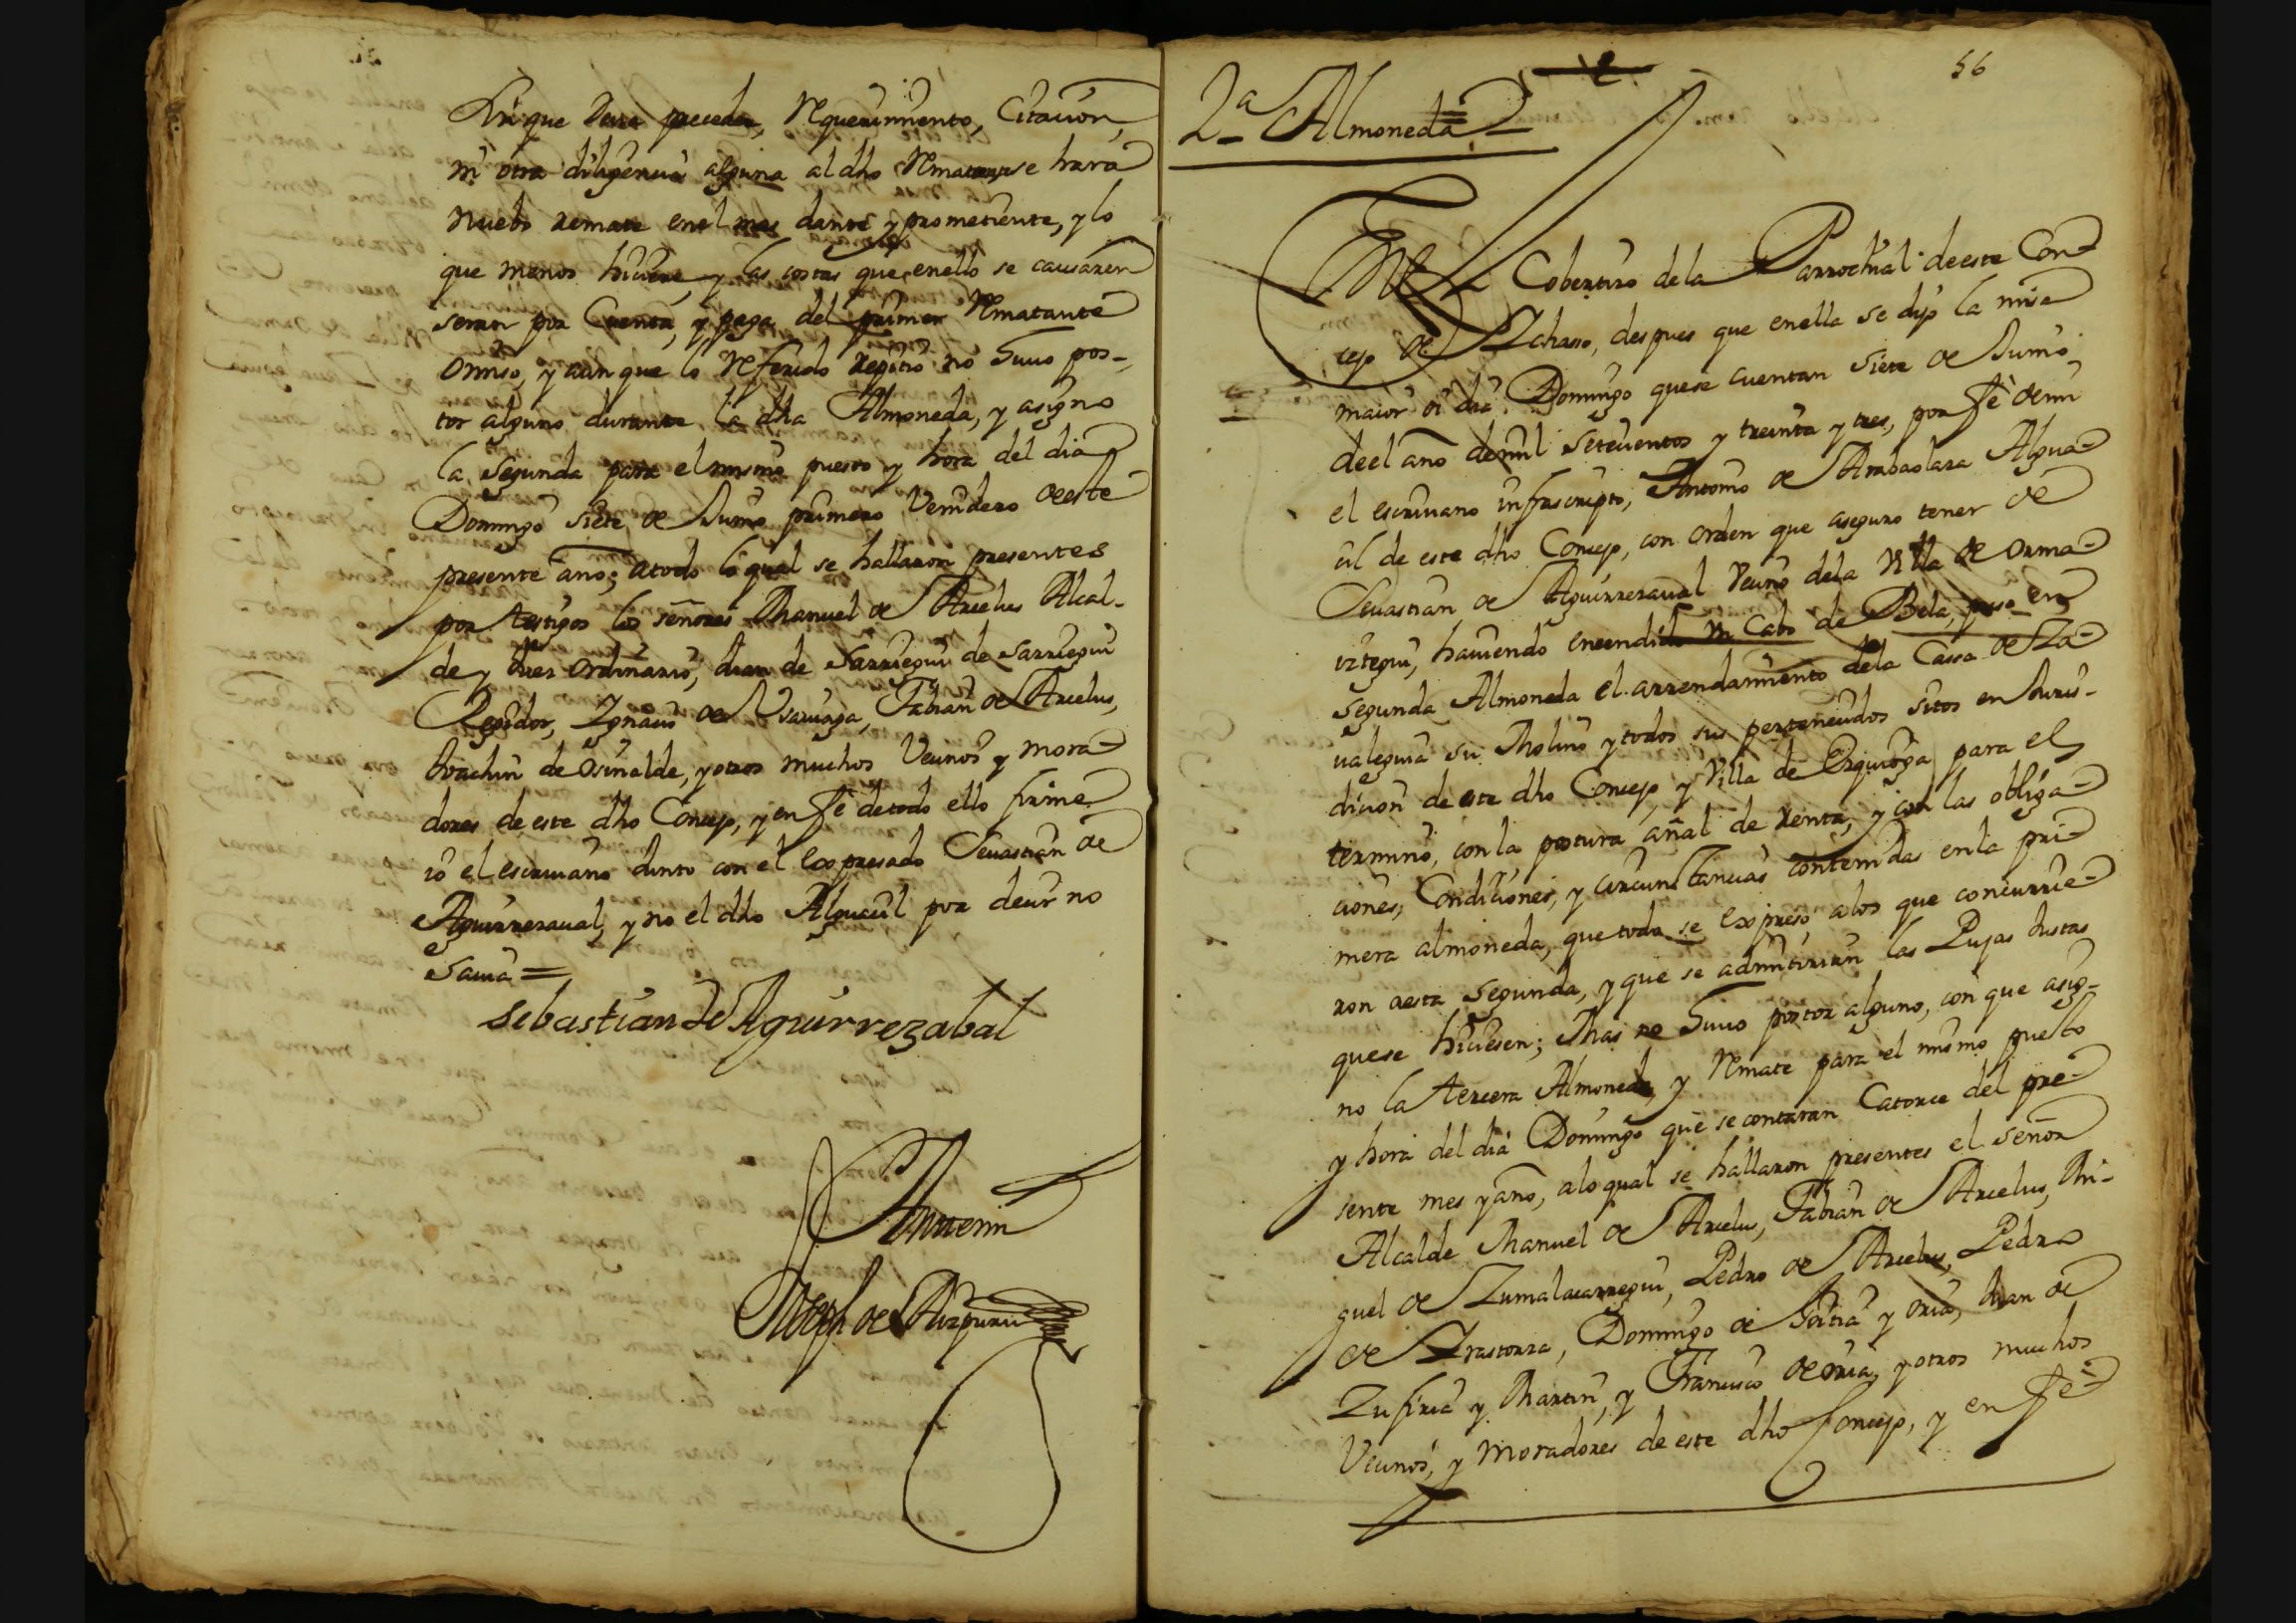 sin que para ello preceda, Requerimiento, Citacion,
ni otra diligencia alguna al dho Rematante se hará
nuebo remate en el mas dante y prometiente, y lo
que menos hiciere, y las costas que en ello se causaren
seran por Cuenta, y paga del primer Rematante
omiso, y aunque lo Referido repitió no huuo pos-
tor alguno durante la dha Almoneda, y asigno
la segunda para el mismo puesto y hora del dia
Domingo siete de Junio primero Venidero de este
presente año; a todo lo qual se hallaron presentes
por testigos los señores Manuel de Arcelus Alcal-
de y Juez ordinario, Juan de Sarriegui de Sarriegui
Regidor, Ygnacio de Vsariaga, Fabian de Arcelus,
Joachin de Osinalde, y otros muchos Vecinos y mora-
dores de este dho Concejo, y en fe de todo ello firme
io el escriuano Junto con el expresado Seuastian de
Aguirrezaual, y no el dho Alguacil por decir no
Sauia =
Sebastian de Aguirrezabal
Ante mi
Joseph de Aizpuru
56
2ª Almoneda
En el Cobertizo de la Parrochial de este Con-
cejo de Ichaso, despues que en ella se dijo la misa
maior oi dia Domingo que se cuentan siete de Junio,
de el año de mil setecientos y treinta y tres, por fe de mi
el escriuano infrascripto, Antonio de Arabaolaza Algua-
cil de este dho Concejo, con orden que aseguro tener de
Seuastian de Aguirrezaual Vecino dela Villa de Orma-
iztegui, hauiendo encendido vn Cabo de Bela, puso en
segunda Almoneda el arrendamiento dela Cassa de Za-
ualeguia su Molino y todos sus pertenecidos sitos en Juris-
dicion de este dho Concejo, y Villa de Ezquioga para el
termino, con la postura añal de renta, y con las obliga-
ciones, Condiciones, y circunstancias contenidas en la pri-
mera almoneda, que todo se expresó, a los que concurrie-
ron a esta segunda, y que se admitirian las Pujas Justas
que se hiciesen; Mas no huuo postor alguno, con que asig-
no la tercera Almoneda, y Remate para el mismo puesto
y hora del dia Domingo que se contaran Catorce del pre-
sente mes y año, a lo qual se hallaron presentes el señor
Alcalde Manuel de Arcelus, Fabian de Arcelus, Mi-
guel de Zumalacarregui, Pedro de Arcelus, Pedro
de Irastorza, Domingo de Goitia y oria, Juan de
Zufiria y Martin, y Francisco de oria, y otros muchos
Vecinos, y moradores de este dho Concejo, y en fe